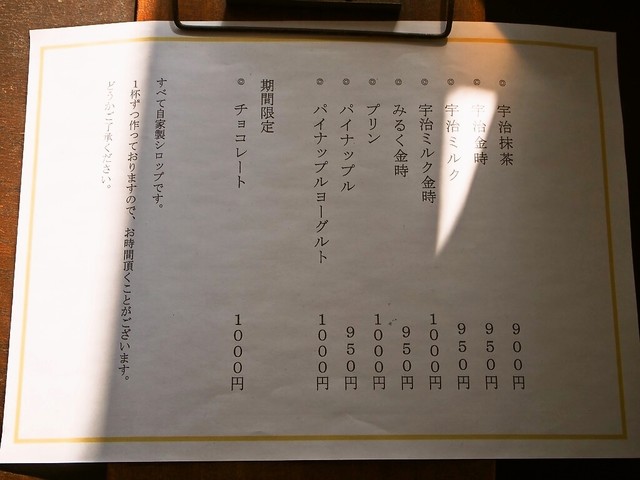 ◎ 宇治抹茶 900円
◎ 宇治金時 950円
◎ 宇治ミルク 950円
◎ 宇治ミルク金時 1000円
◎ みるく金時 950円
◎ プリン 1000円
◎ パイナップル 950円
◎ パイナップルヨーグルト 1000円
期間限定
◎ チョコレート 1000円
すべて自家製シロップです。
1杯ずつ作っておりますので、お時間頂くことがございます。
どうかご了承ください。